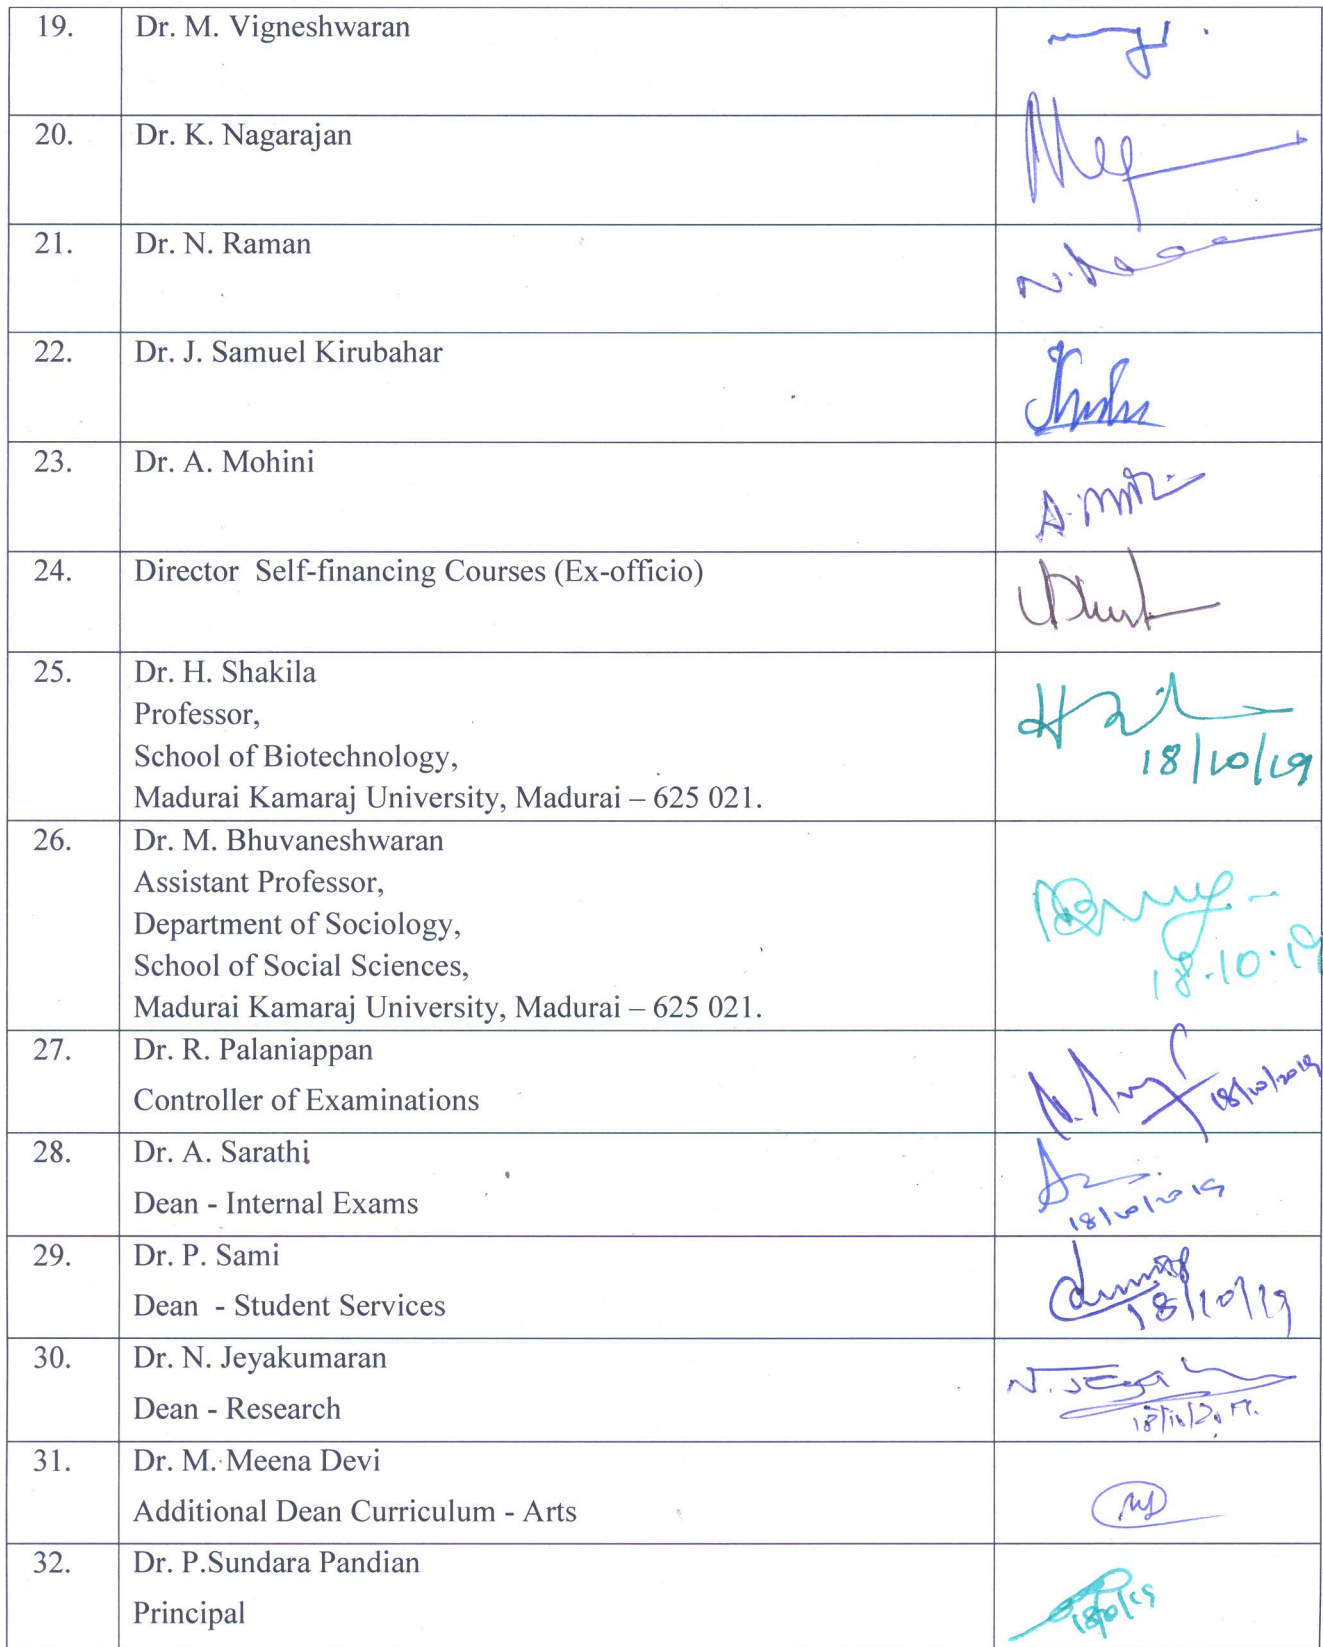 19. Dr. M. Vigneshwaran
20. Dr. K. Nagarajan
21. Dr. N. Raman
22. Dr. J. Samuel Kirubahar
23. Dr. A. Mohini
24. Director Self-financing Courses (Ex-officio)
25. Dr. H. Shakila
Professor,
School of Biotechnology,
18/10/19
Madurai Kamaraj University, Madurai – 625 021.
26. Dr. M. Bhuvaneshwaran
Assistant Professor,
Department of Sociology,
School of Social Sciences,
18.10.19
Madurai Kamaraj University, Madurai – 625 021.
27. Dr. R. Palaniappan
18/10/2019
Controller of Examinations
28. Dr. A. Sarathi
Dean - Internal Exams
18/10/2019
29. Dr. P. Sami
Dean - Student Services
18/10/19
30. Dr. N. Jeyakumaran
Dean - Research
31. Dr. M. Meena Devi
Additional Dean Curriculum - Arts
32. Dr. P.Sundara Pandian
Principal
18/10/19